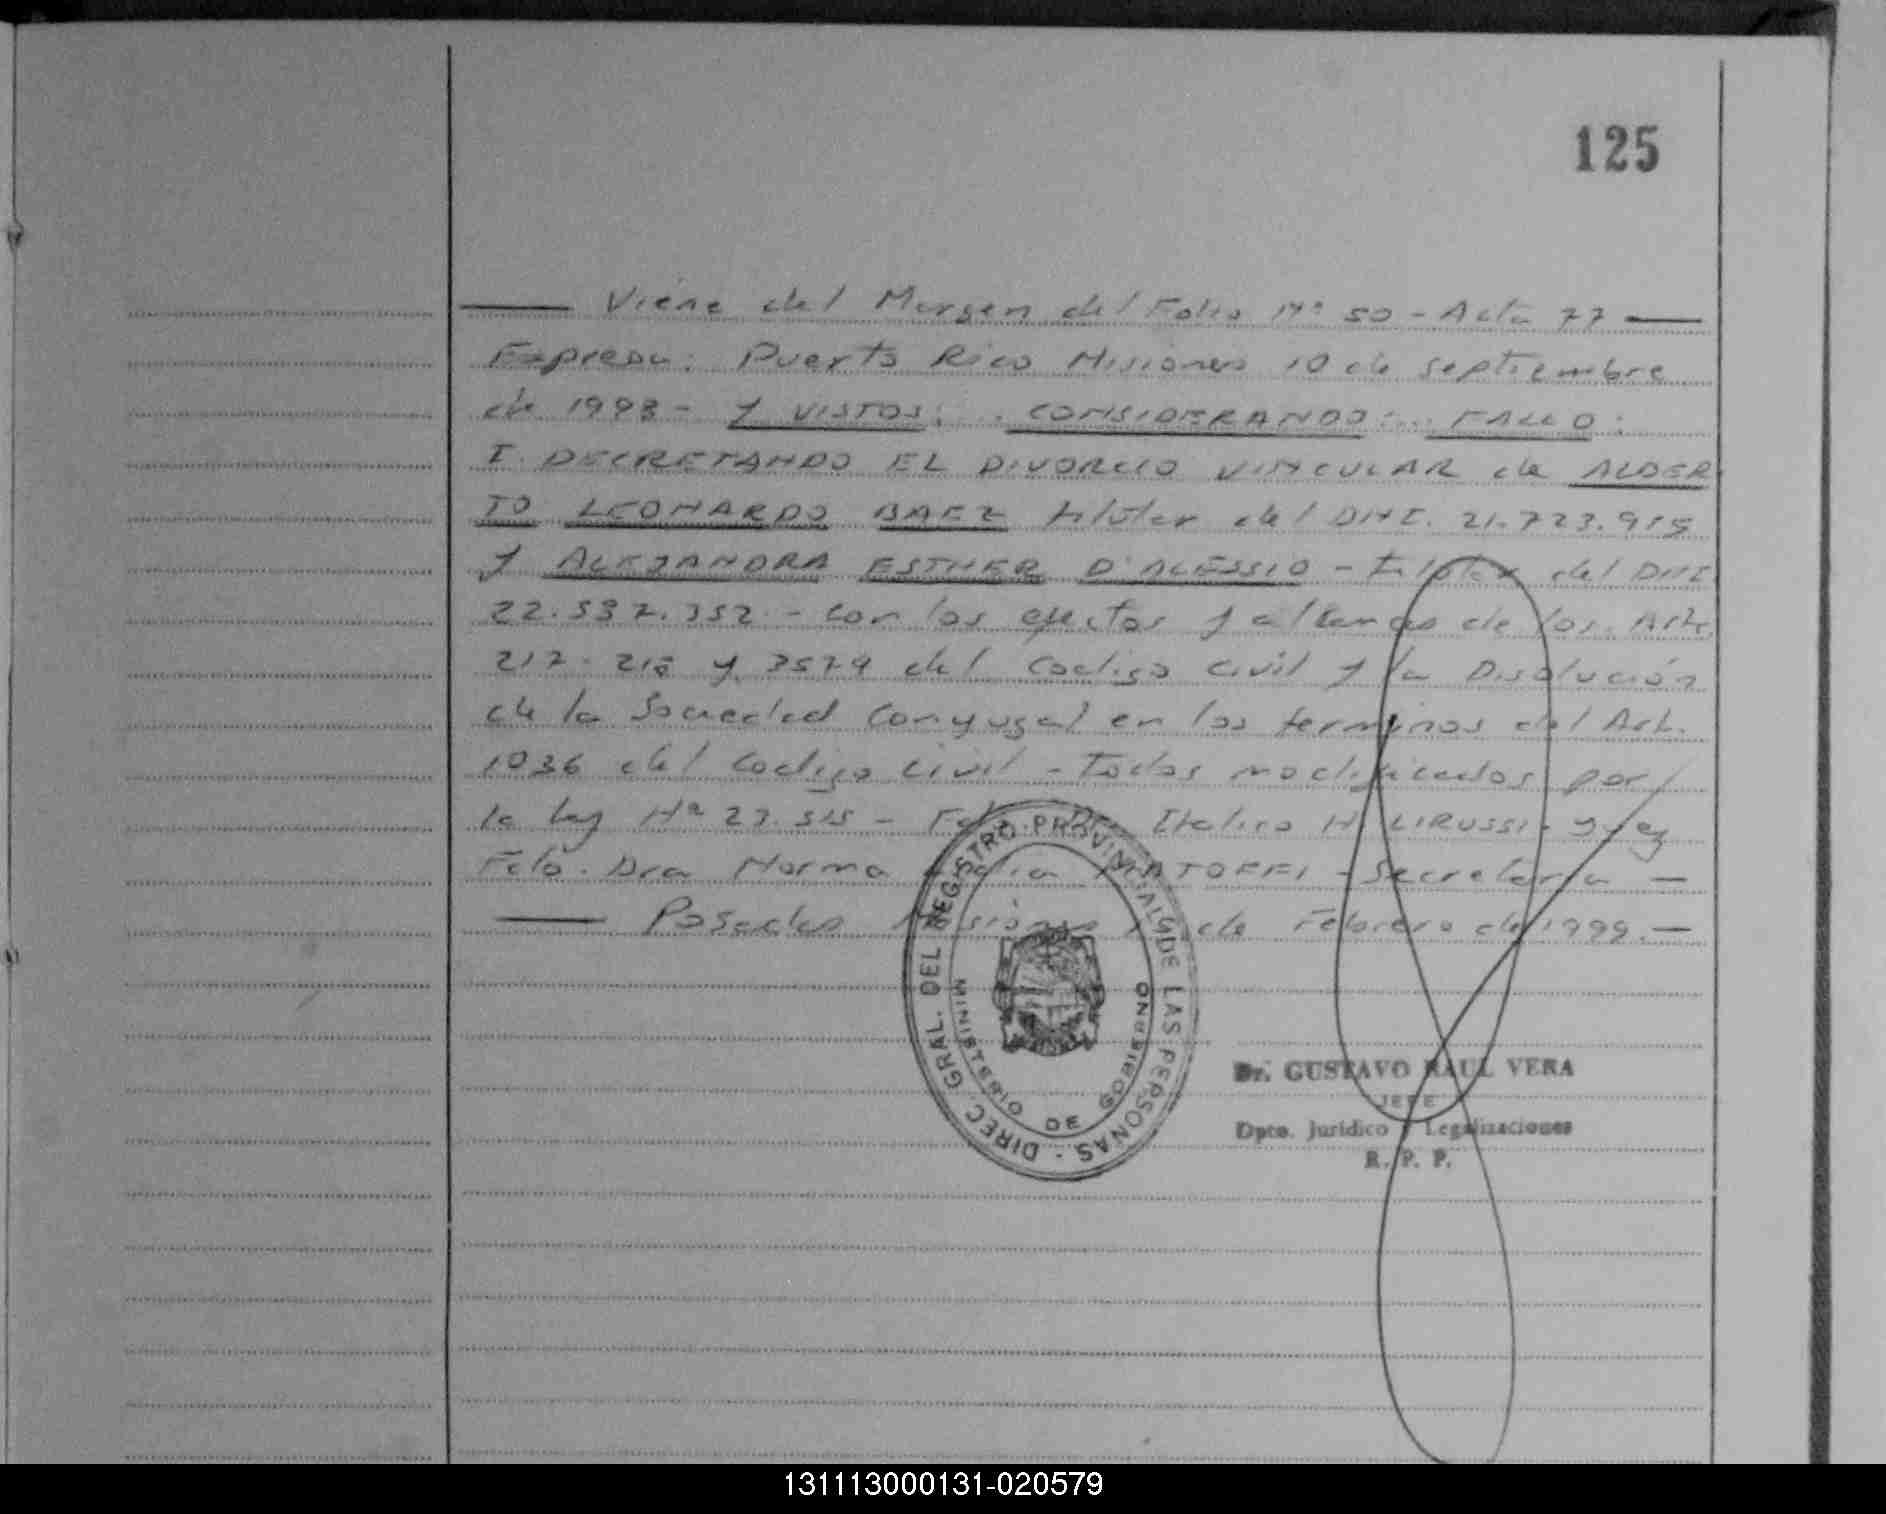 125
Viene del Margen del Folio Nº 50 - Acta 77
Expresa: Puerto Rico Misiones 10 de septiembre
de 1998 - Y VISTOS: . CONSIDERANDO: .. FALLO:
I. DECRETANDO EL DIVORCIO VINCULAR de ALBER
TO LEONARDO BAEZ titular del DNI. 21.723.915
Y ALEJANDRA ESTHER D'ALESSIO - titular del DNI
22.537.352 - con los efectos y alcances de los Art.
217. 218 y 3574 del Codigo Civil y la Disolución
de la Sociedad Conyugal en los terminos del Art.
1036 del Codigo Civil - Todos modificados por
la Ley Nº 23.515 - Fdo. Dr. Italico H. LIRUSSI - Juez
Fdo. Dra Norma MATOFFI - Secretaria -
Posadas Misiones de Febrero de 1999. -
DIREC. GRAL. DEL REGISTRO PROVINCIAL DE LAS PERSONAS -
MINISTERIO DE GOBIERNO
Dr. GUSTAVO RAUL VERA
JEFE
Dpto. Jurídico y Legalizaciones
R. P. P.
131113000131-020579